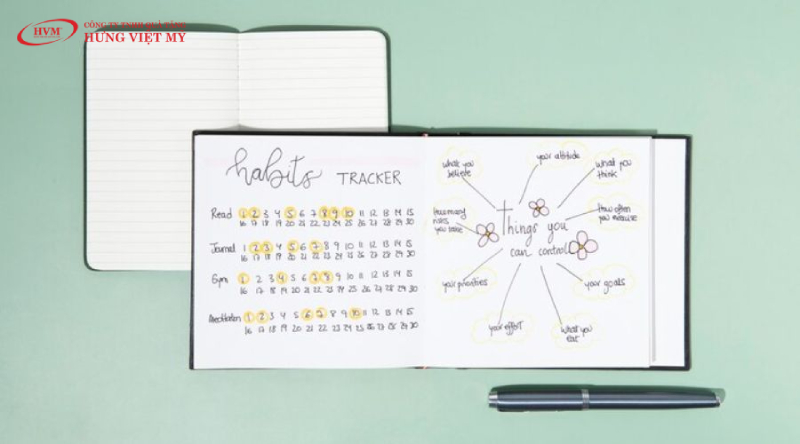 HVM
CÔNG TY TNHH QUÀ TẶNG
HƯNG VIỆT MỸ
habits TRACKER
Read 1 2 3 4 5 6 7 8 9 10 11 12 13 14 15
16 17 18 19 20 21 22 23 24 25 26 27 28 29 30
Journal 1 2 3 4 5 6 7 8 9 10 11 12 13 14 15
16 17 18 19 20 21 22 23 24 25 26 27 28 29 30
Gym 1 2 3 4 5 6 7 8 9 10 11 12 13 14 15
16 17 18 19 20 21 22 23 24 25 26 27 28 29 30
1 2 3 4 5 6 7 8 9 10 11 12 13 14 15
16 17 18 19 20 21 22 23 24 25 26 27 28 29 30
what you
believe
your attitude
what you
think
How many
you take
Things you
can control
How often
you
your priorities
your goals
your effort
what you
eat